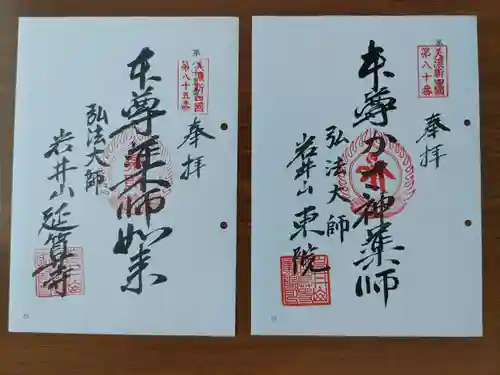 奉拝
美濃新四國
第八十番
本尊かさ神薬師
弘法大師
岩井山東院
奉拝
美濃新四國
第八十五番
本尊薬師如来
弘法大師
岩井山延算寺